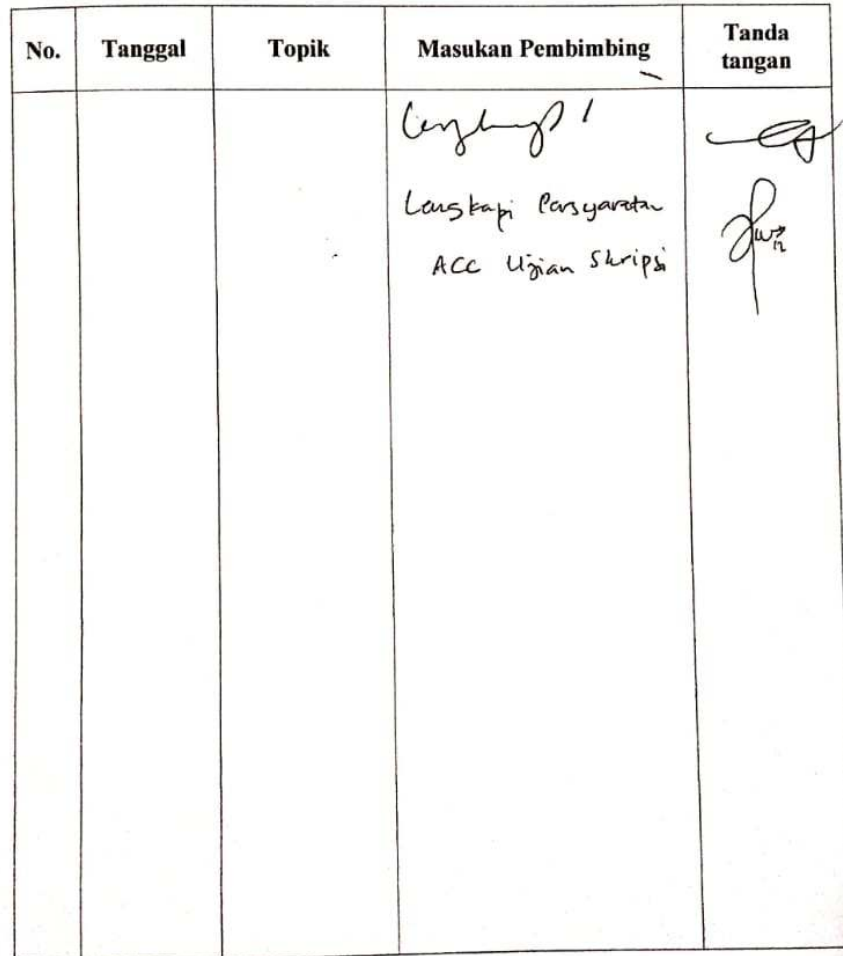 No. Tanggal Topik Masukan Pembimbing Tanda tangan
Lengkapi Persyaratan
ACC Ujian Skripsi